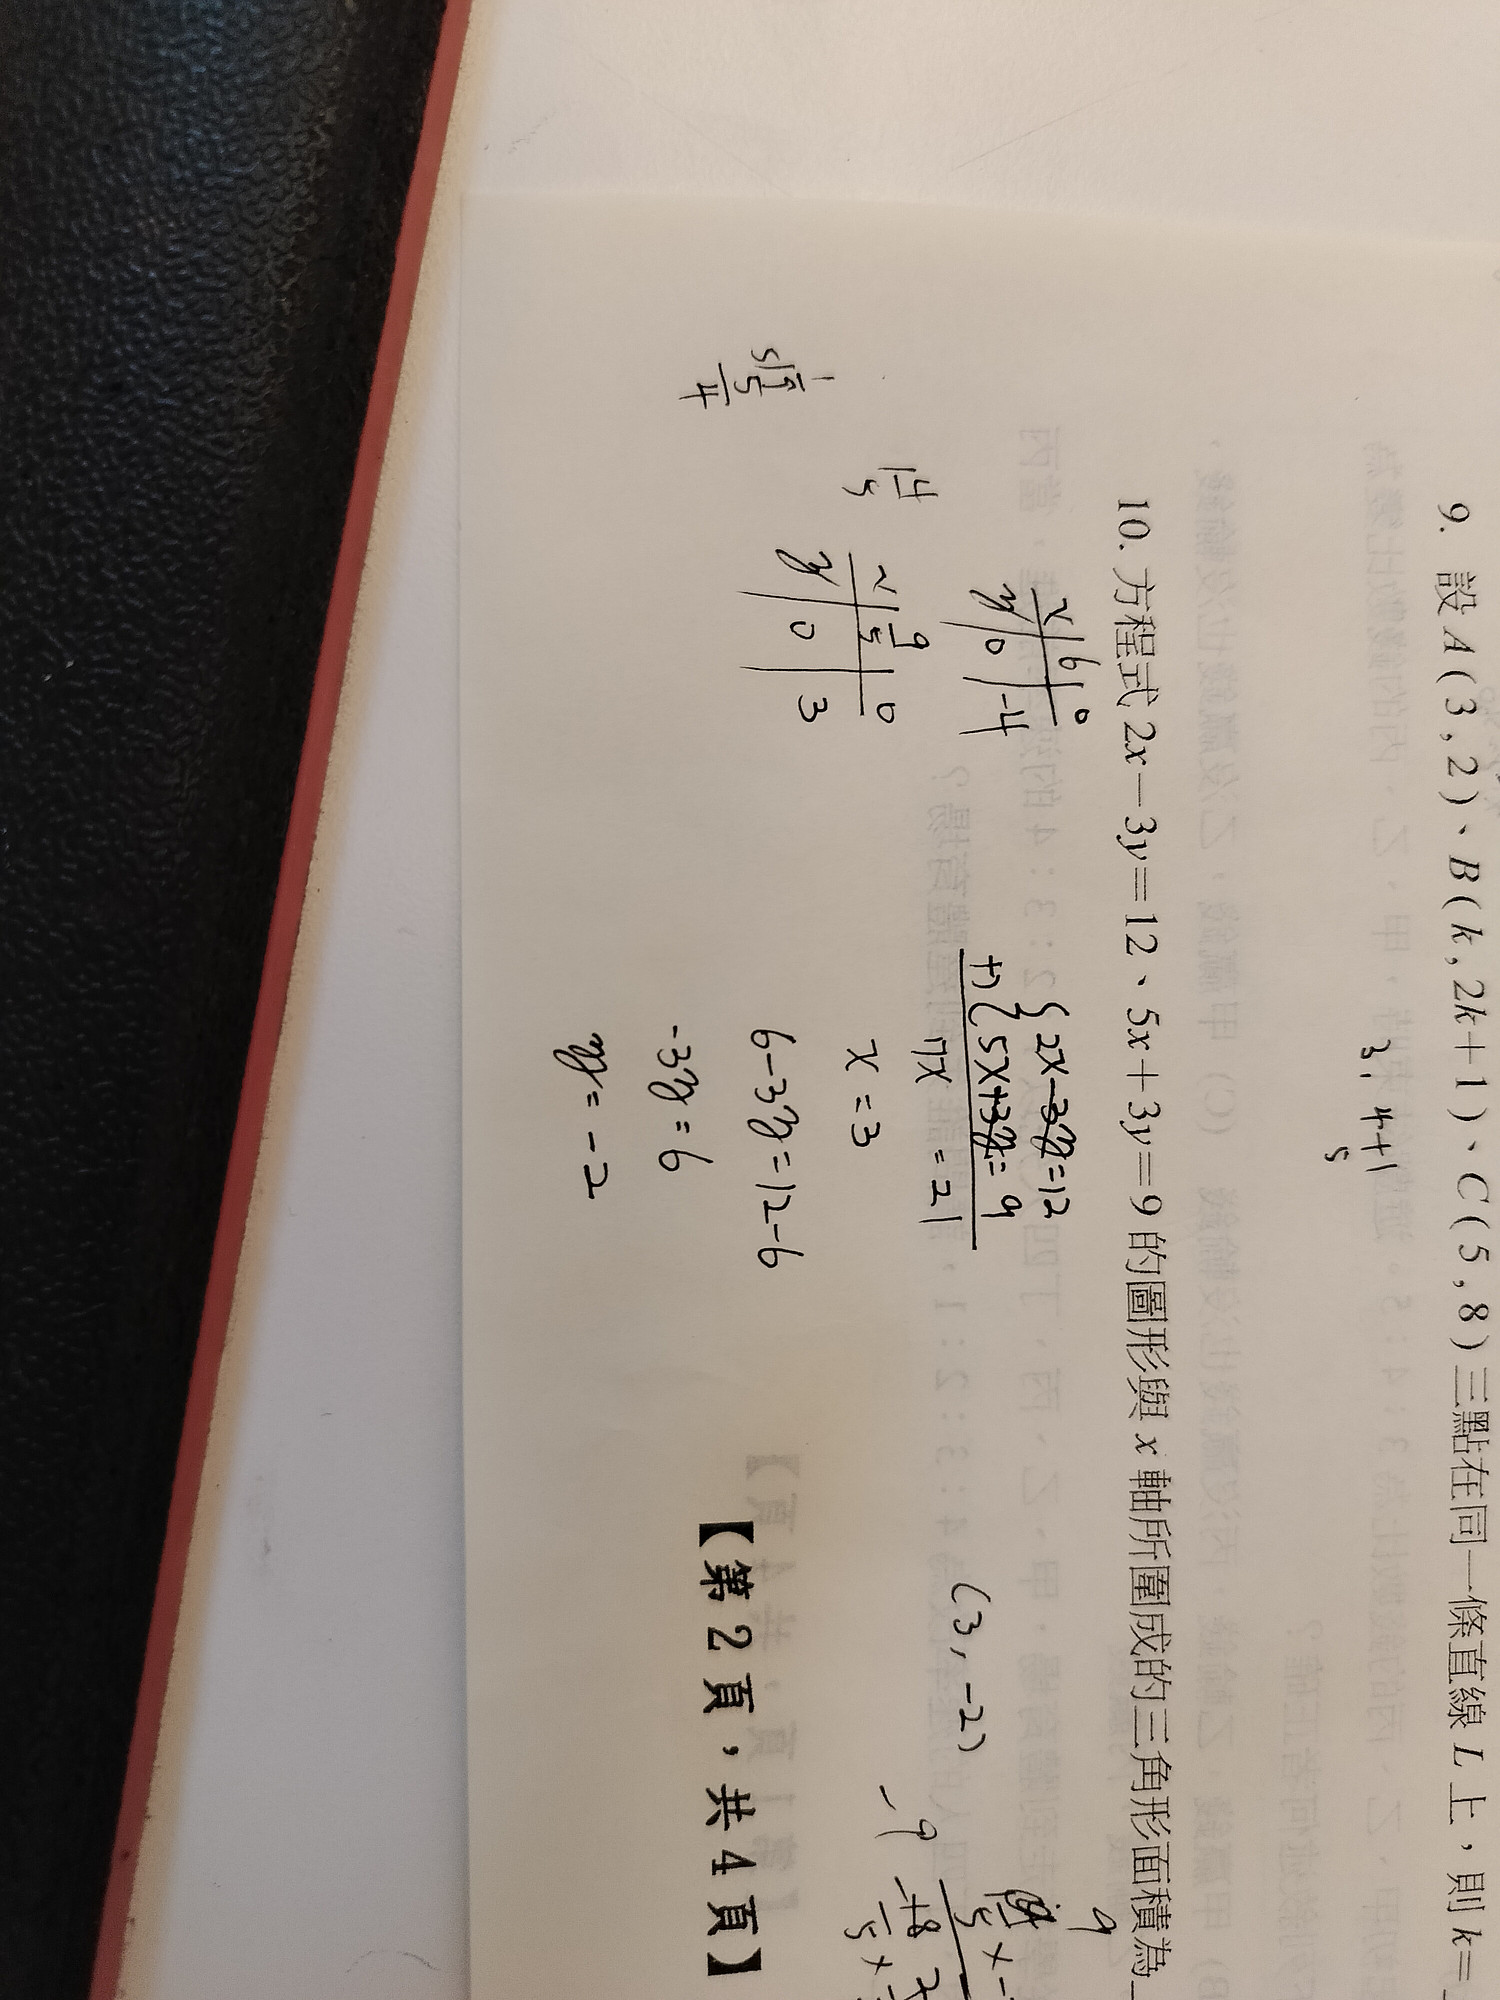 9. 設 A(3,2)、B(k,2k+1)、C(5,8)三點在同一條直線 L 上，則 k=
3. 4+1
5
10. 方程式 2x-3y=12、5x+3y=9 的圖形與 x 軸所圍成的三角形面積為
x | 6 | 0
y | 0 | -4
x | 9/5 | 0
y | 0 | 3
1 4/5
{ 2x-3y=12
+) 5x+3y=9
7x = 21
x = 3
6-3y=12-6
-3y=6
y = -2
(3, -2)
9
-9
【第 2 頁，共 4 頁】